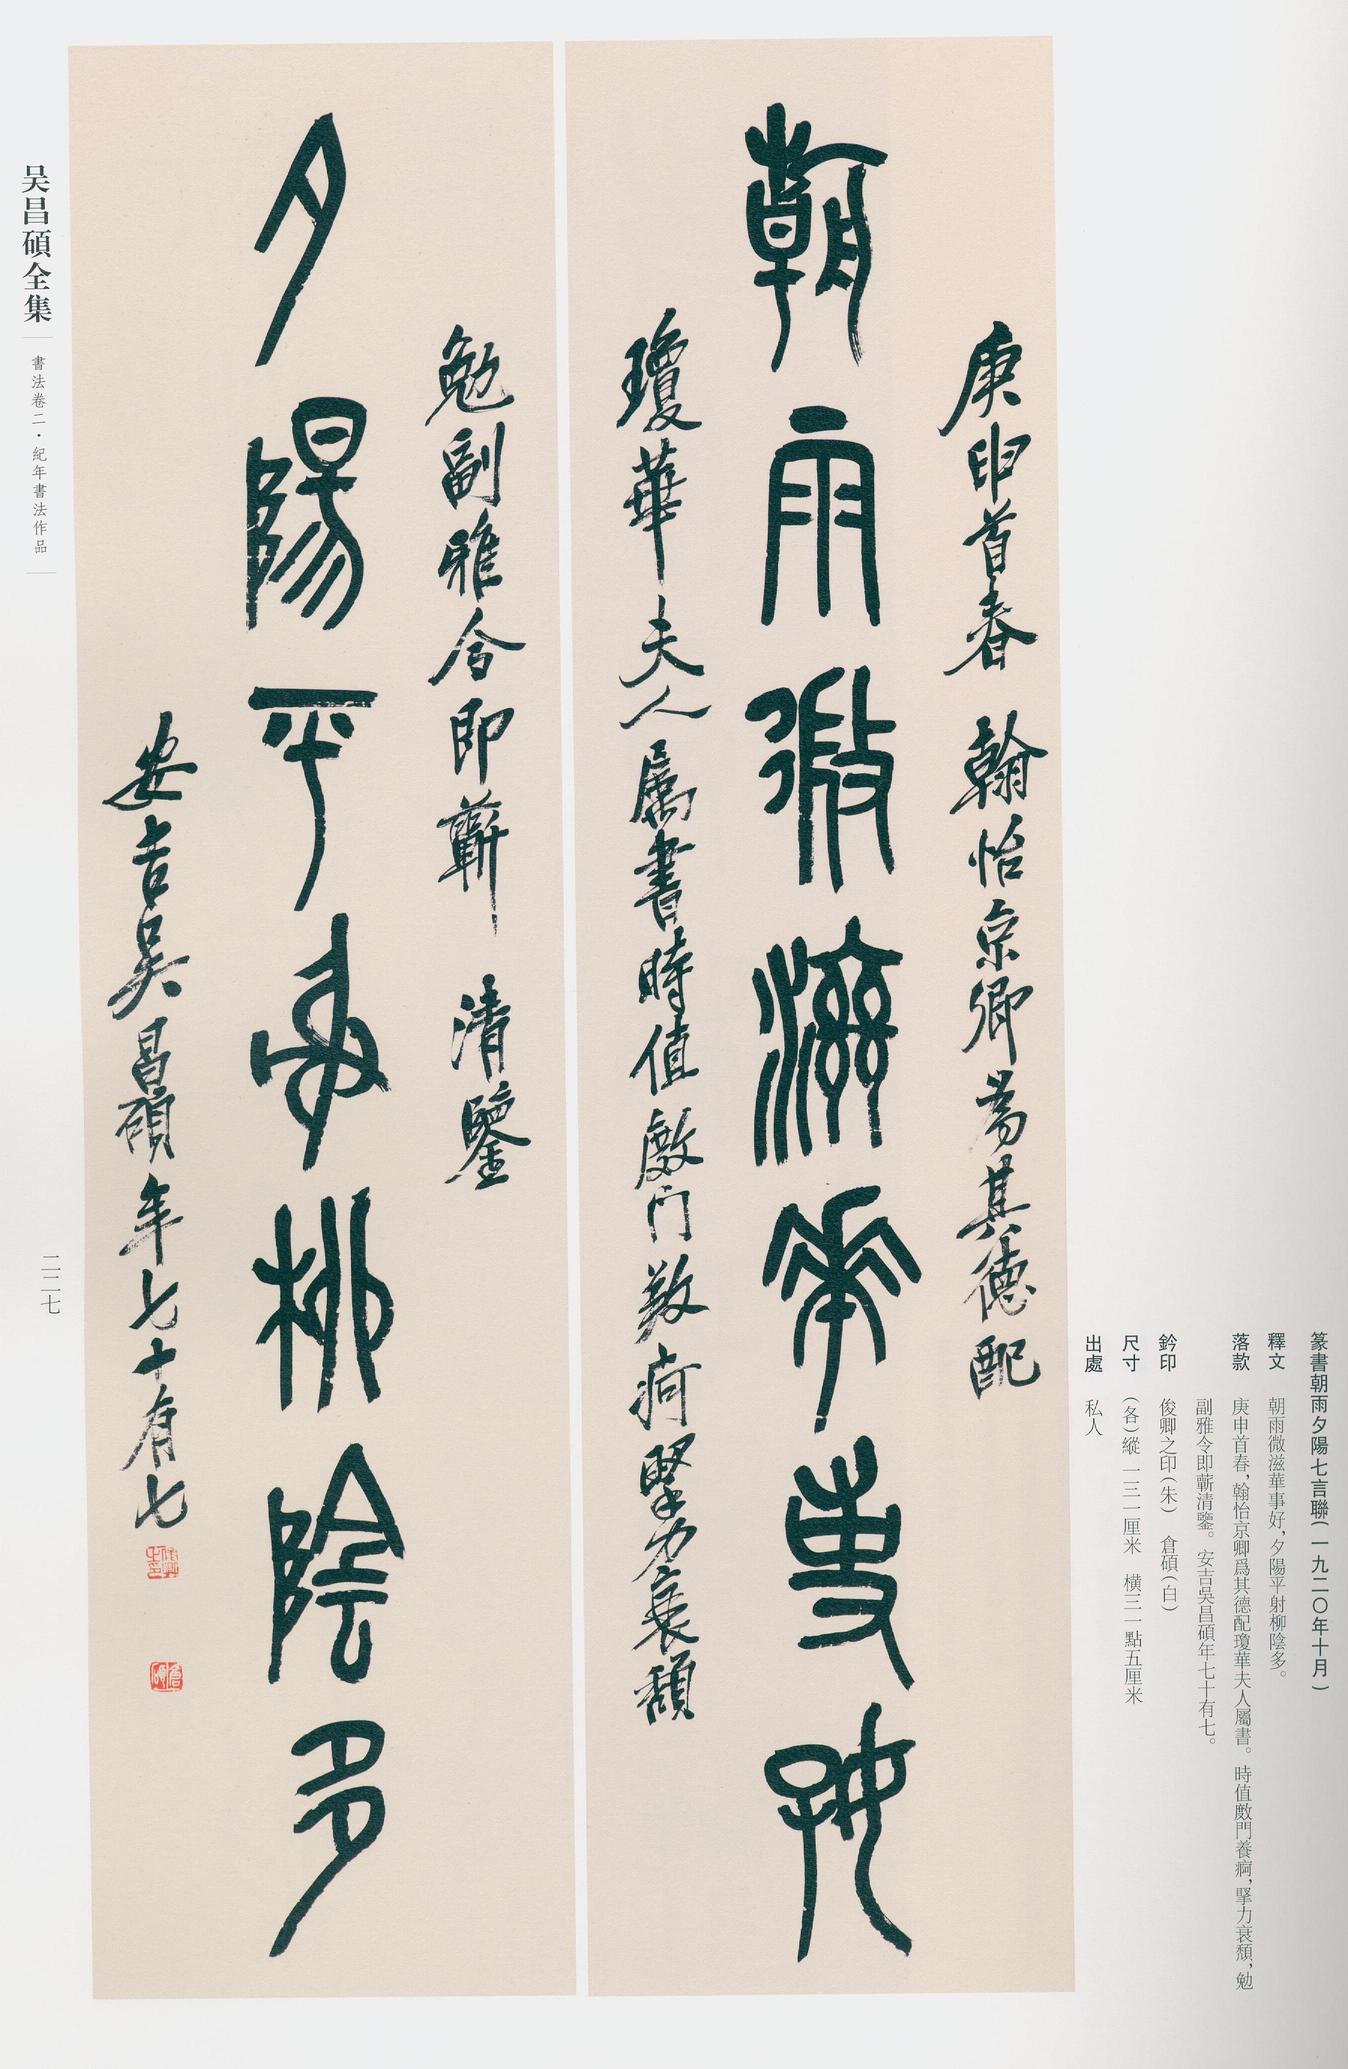 朝雨微滋華事好
庚申首春翰怡京卿為其德配
瓊華夫人屬書時值㢈門養疴掔力衰頹
夕陽平射柳陰多
勉副雅令即蘄清鑒
安吉吳昌碩年七十有七
篆書朝雨夕陽七言聯(一九二〇年十月)
釋文 朝雨微滋華事好,夕陽平射柳陰多。
落款 庚申首春,翰怡京卿爲其德配瓊華夫人屬書。時值門養疴,掔力衰頹,勉
副雅令即蘄清鑒。安吉吳昌碩年七十有七。
鈐印 俊卿之印(朱) 倉碩(白)
尺寸 (各)縱一三一厘米 橫三一點五厘米
出處 私人
吴昌碩全集
書法卷二·紀年書法作品
二二七